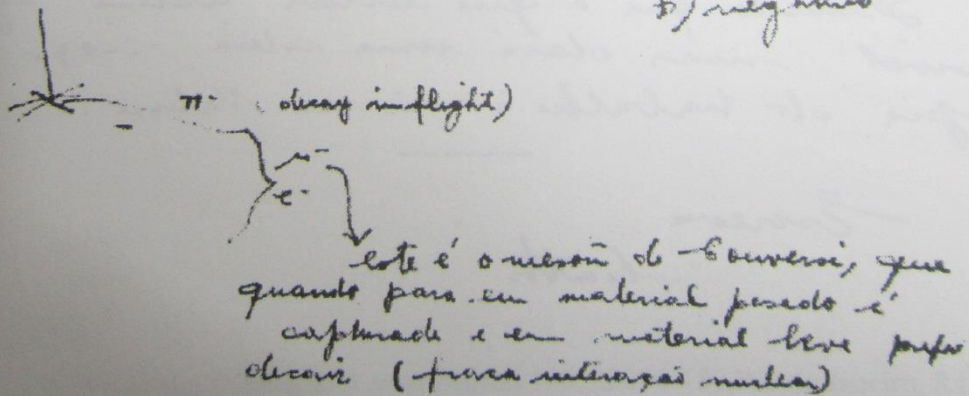 b) negativo
π⁻ decay in flight)
-
μ⁻
e⁻
este é o meson de Conversi, que
quando para em material pesado é
capturado e em material leve prefere
decair (fraca interação nuclear)